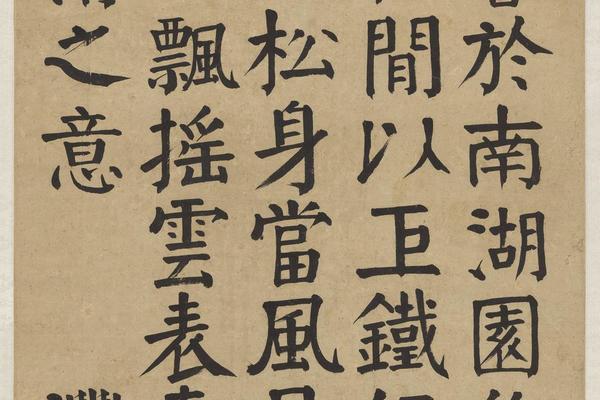 於南湖園
間以巨鐵
松身當風
飄搖雲表
之意